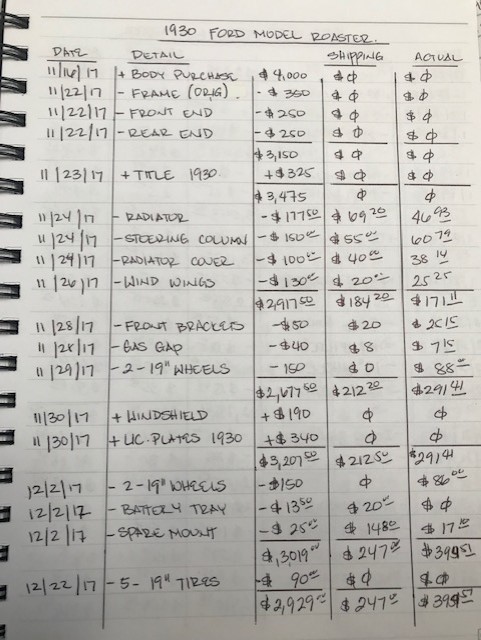 1930 FORD MODEL ROASTER.
DATE DETAIL SHIPPING ACTUAL
11/16/17 + BODY PURCHASE $4,000 $ϕ $ϕ
11/22/17 - FRAME (ORIG). -$350 $ϕ $ϕ
11/22/17 - FRONT END -$250 $ϕ $ϕ
11/22/17 - REAR END -$250 $ϕ $ϕ
$3,150 $ϕ $ϕ
11/23/17 + TITLE 1930 +$325 $ϕ $ϕ
$3,475 ϕ ϕ
11/24/17 - RADIATOR -$177 50 $69 20 46 93
11/24/17 - STEERING COLUMN -$150 00 $55 00 60 79
11/24/17 - RADIATOR COVER -$100 00 $40 00 38 14
11/26/17 - WIND WINGS -$130 00 $20 00 25 25
$2,917 50 $184 20 $171 11
11/28/17 - FRONT BRACKETS -$50 $20 $25 15
11/28/17 - GAS GAP -$40 $8 $7 15
11/29/17 - 2-19" WHEELS -150 $0 $88 00
$2,677 50 $212 20 $291 41
11/30/17 + WINDSHIELD +$190 ϕ ϕ
11/30/17 + LIC. PLATES 1930 +$340 ϕ ϕ
$3,207 50 $212 50 $291 41
12/2/17 - 2-19" WHEELS -$150 ϕ $86 00
12/2/17 - BATTERY TRAY -$13 50 $20 00 $ϕ
12/2/17 - SPARE MOUNT -$25 00 $14 80 $17 10
$3,019 00 $247 $394 51
12/22/17 - 5- 19" TIRES -$90 00 $ϕ $ϕ
$2,929 00 $247 $394 51